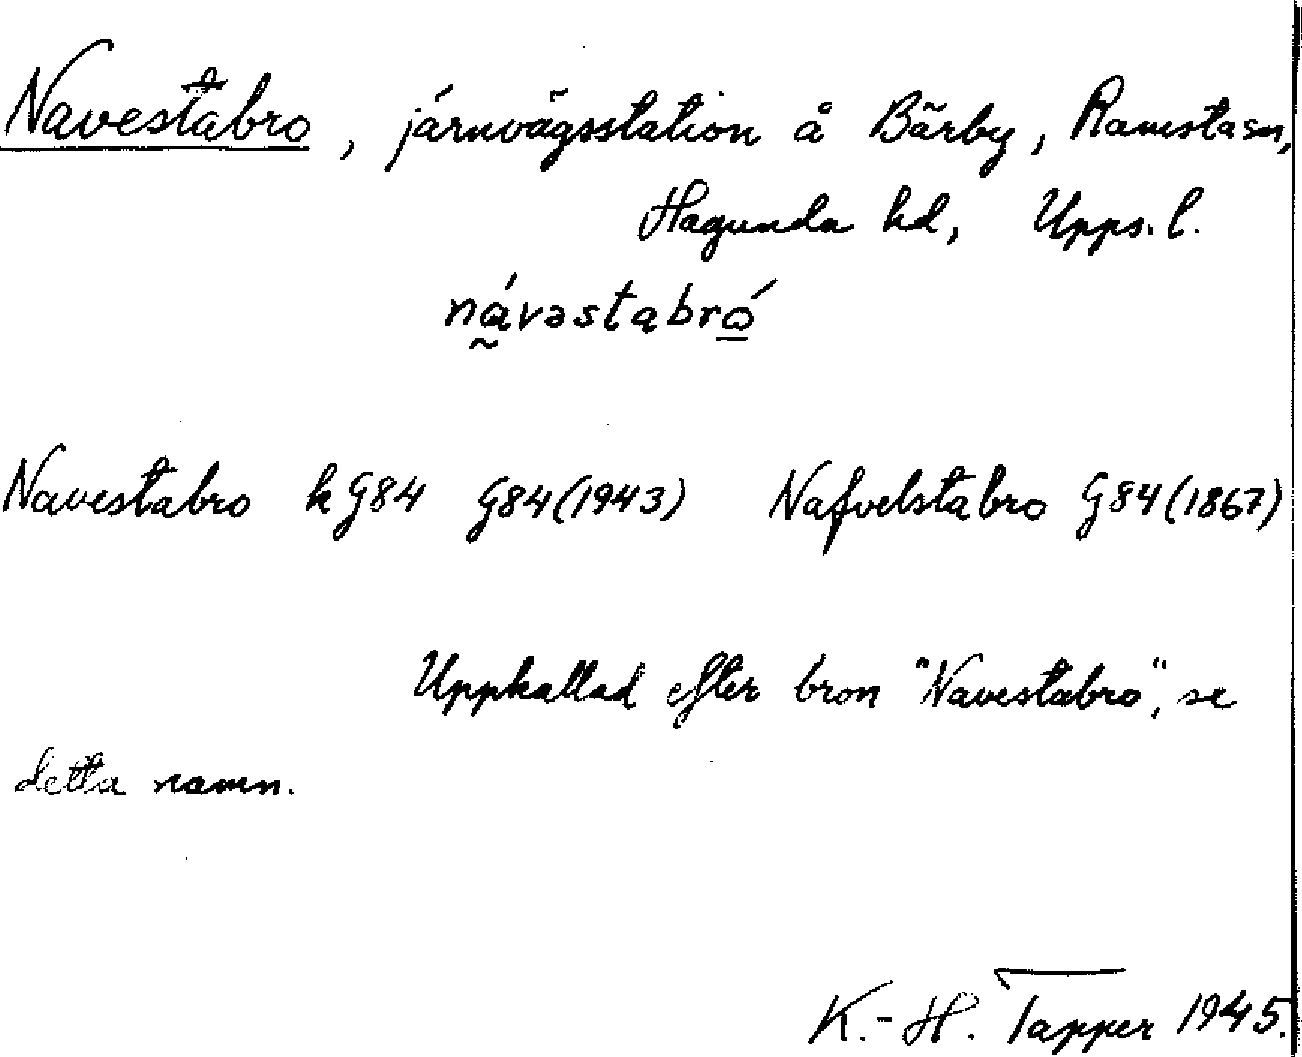 Navestabro, järnvägsstation å Bärby, Ramsta sn,
Hagunda hd, Upps. l.
návəstabró
Navestabro k G84 G84(1943) Nafvelstabro G84(1867)
Uppkallad efter bron "Navestabro", se
detta namn.
K.-H. Tapper 1945.